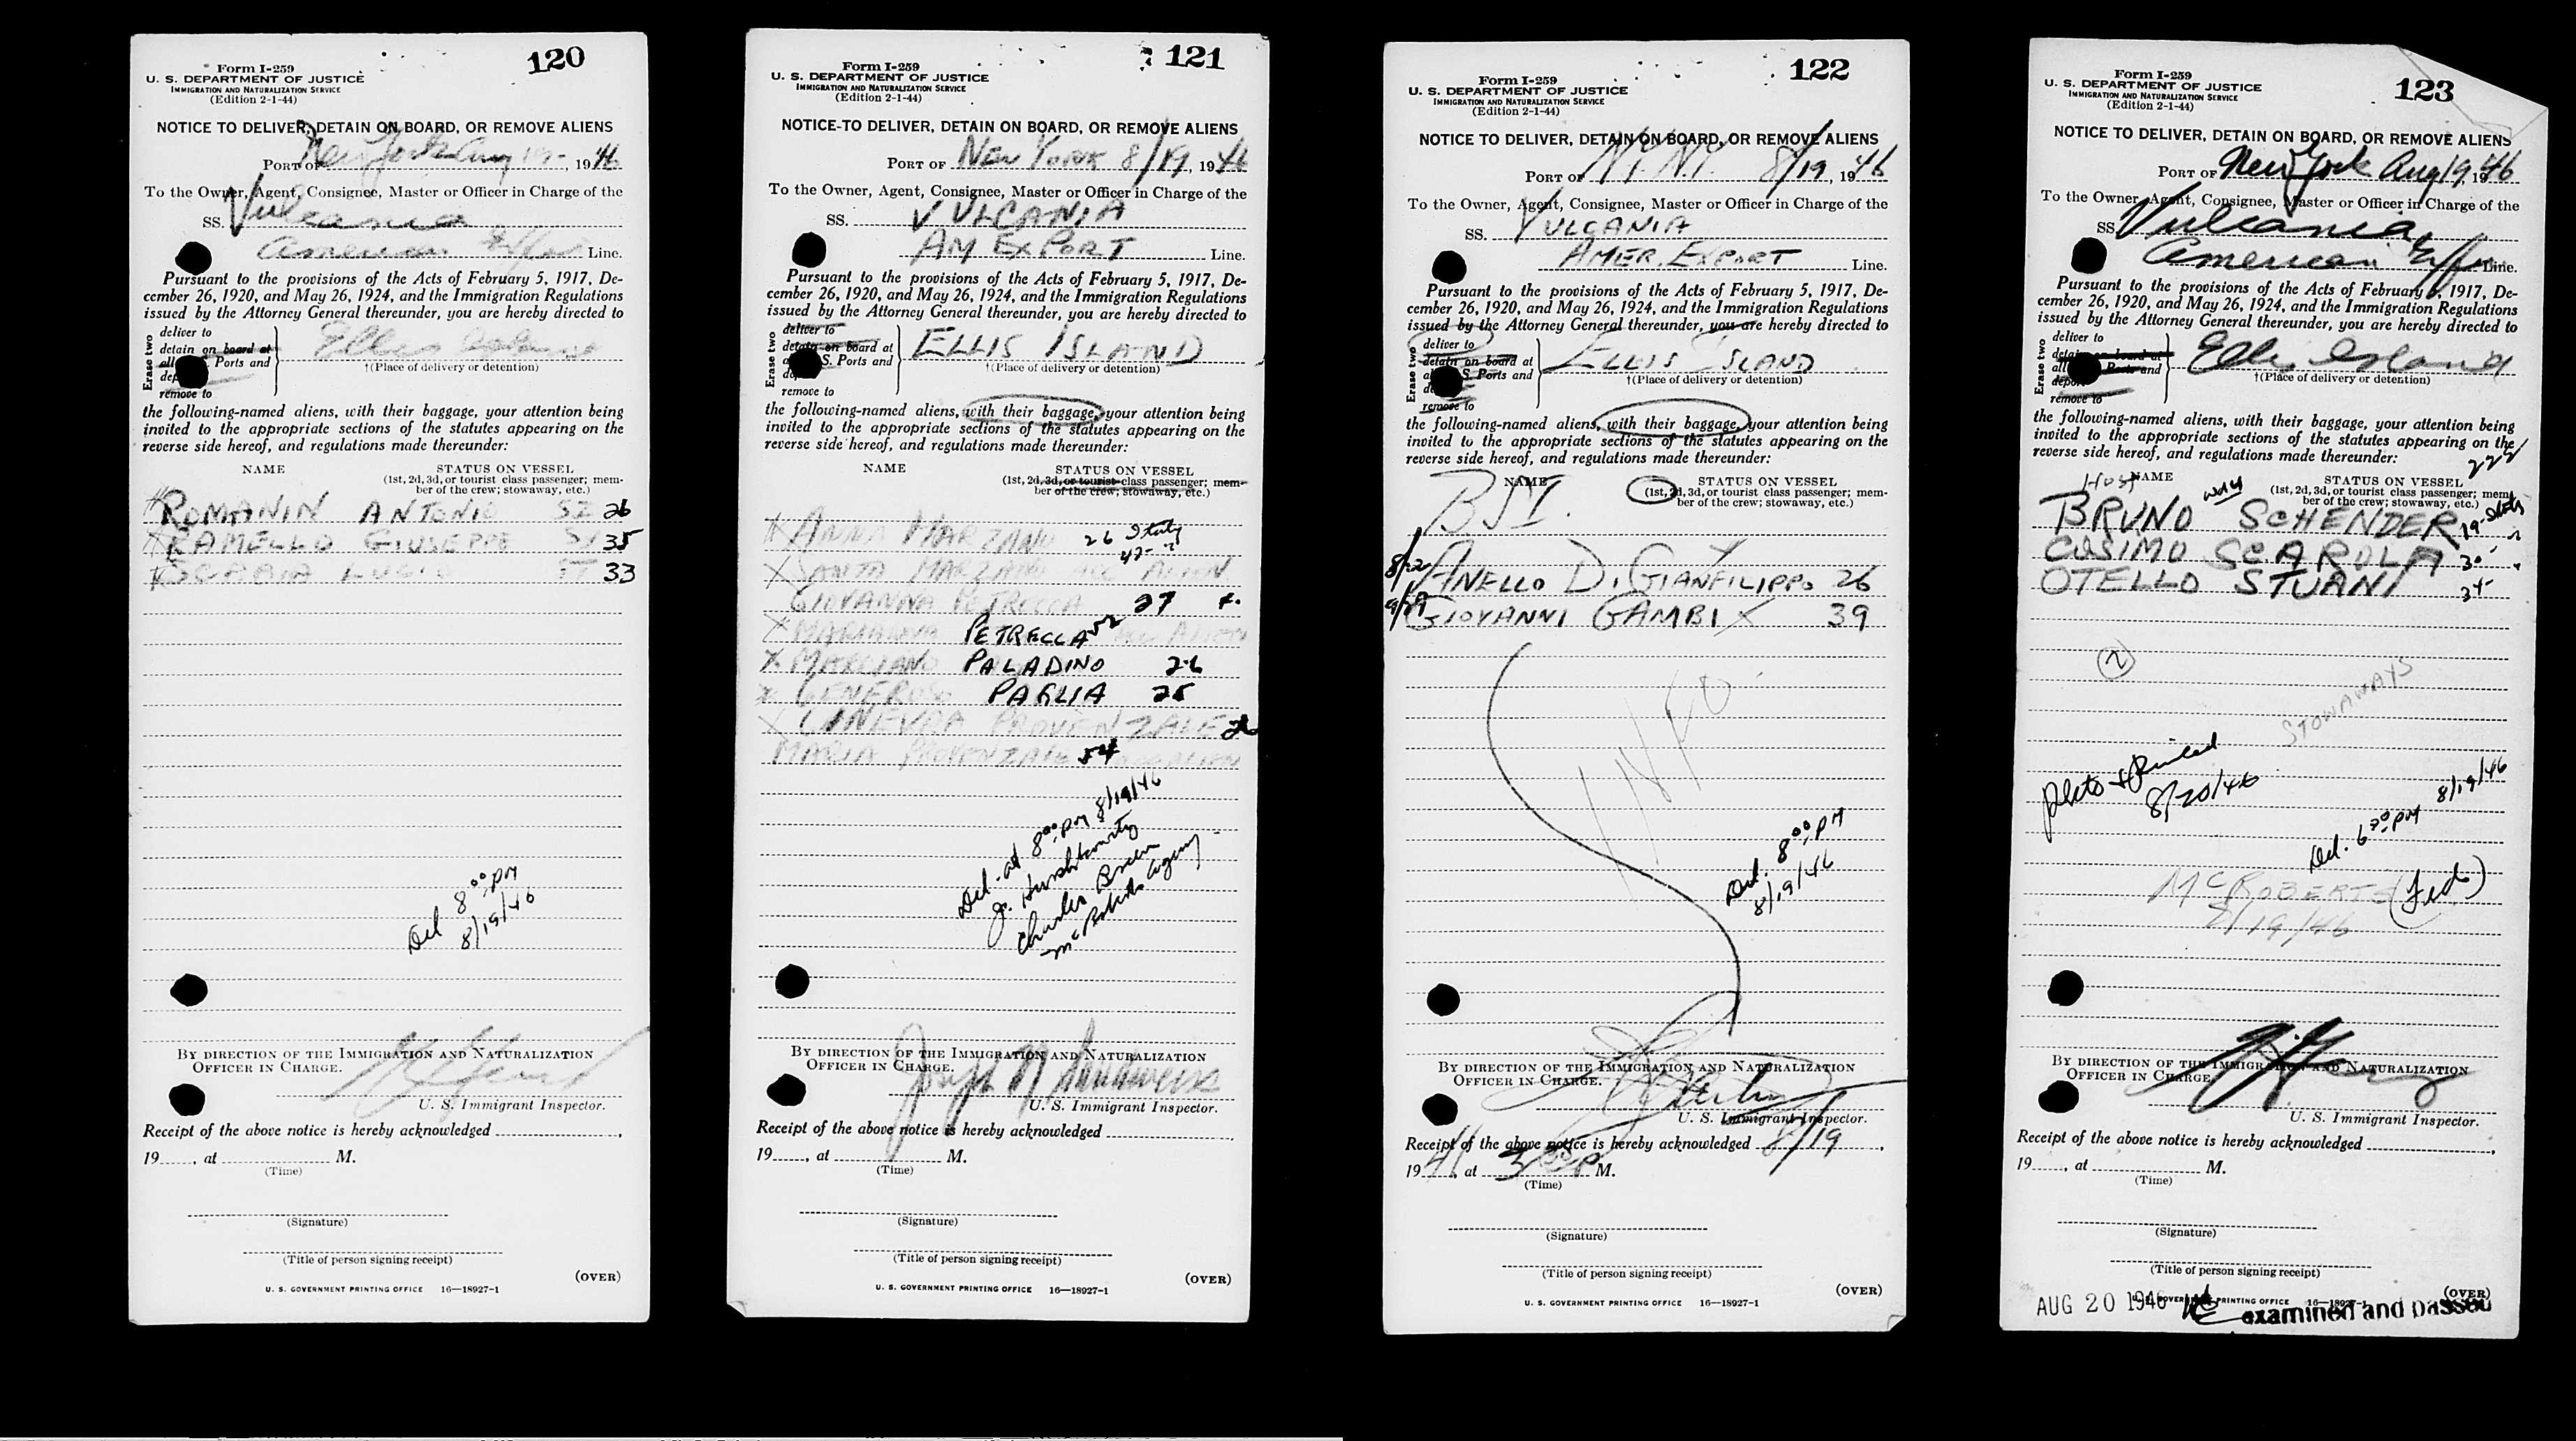 120
Form I-259
U. S. DEPARTMENT OF JUSTICE
IMMIGRATION AND NATURALIZATION SERVICE
(Edition 2-1-44)
NOTICE TO DELIVER, DETAIN ON BOARD, OR REMOVE ALIENS
PORT OF New York Aug 19, 1946
To the Owner, Agent, Consignee, Master or Officer in Charge of the
SS. Vulcania
American Export Line.
Pursuant to the provisions of the Acts of February 5, 1917, De-
cember 26, 1920, and May 26, 1924, and the Immigration Regulations
issued by the Attorney General thereunder, you are hereby directed to
Erase two
deliver to
detain on board at
all Ports and
remove to
Ellis Island
†(Place of delivery or detention)
the following-named aliens, with their baggage, your attention being
invited to the appropriate sections of the statutes appearing on the
reverse side hereof, and regulations made thereunder:
NAME STATUS ON VESSEL
(1st, 2d, 3d, or tourist class passenger; mem-
ber of the crew; stowaway, etc.)
ROMANIN ANTONIO 26
RAMELLO GIUSEPPE 35
33
Del 8:00 PM
8/19/46
BY DIRECTION OF THE IMMIGRATION AND NATURALIZATION
OFFICER IN CHARGE.
U. S. Immigrant Inspector.
Receipt of the above notice is hereby acknowledged
19 , at M.
(Time)
(Signature)
(Title of person signing receipt)
(OVER)
U. S. GOVERNMENT PRINTING OFFICE 16—18927-1
121
Form I-259
U. S. DEPARTMENT OF JUSTICE
IMMIGRATION AND NATURALIZATION SERVICE
(Edition 2-1-44)
NOTICE TO DELIVER, DETAIN ON BOARD, OR REMOVE ALIENS
PORT OF NEW YORK 8/19, 1946
To the Owner, Agent, Consignee, Master or Officer in Charge of the
SS. VULCANIA
AM EXPORT Line.
Pursuant to the provisions of the Acts of February 5, 1917, De-
cember 26, 1920, and May 26, 1924, and the Immigration Regulations
issued by the Attorney General thereunder, you are hereby directed to
Erase two
deliver to
detain on board at
S. Ports and
remove to
ELLIS ISLAND
†(Place of delivery or detention)
the following-named aliens, with their baggage, your attention being
invited to the appropriate sections of the statutes appearing on the
reverse side hereof, and regulations made thereunder:
NAME STATUS ON VESSEL
(1st, 2d, 3d, or tourist class passenger; mem-
ber of the crew; stowaway, etc.)
X ANNA MARZANO 26 Italy
X SANTA MARZANO ALIEN
GIOVANNA PETRECCA 27
X MARIANNA PETRECCA 52
X MARCIANO PALADINO 26
X GENEROSO PAGLIA 25
X GINEVRA PROVENZALE 26
MARIA PROVENZALE 54
Del. at 8:00 PM 8/19/46
Charles Breen
McRoberts Agency
BY DIRECTION OF THE IMMIGRATION AND NATURALIZATION
OFFICER IN CHARGE.
U. S. Immigrant Inspector.
Receipt of the above notice is hereby acknowledged
19 , at M.
(Time)
(Signature)
(Title of person signing receipt)
(OVER)
U. S. GOVERNMENT PRINTING OFFICE 16—18927-1
122
Form I-259
U. S. DEPARTMENT OF JUSTICE
IMMIGRATION AND NATURALIZATION SERVICE
(Edition 2-1-44)
NOTICE TO DELIVER, DETAIN ON BOARD, OR REMOVE ALIENS
PORT OF N.Y. N.Y. 8/19, 1946
To the Owner, Agent, Consignee, Master or Officer in Charge of the
SS. VULCANIA
AMER. EXPORT Line.
Pursuant to the provisions of the Acts of February 5, 1917, De-
cember 26, 1920, and May 26, 1924, and the Immigration Regulations
issued by the Attorney General thereunder, you are hereby directed to
Erase two
deliver to
detain on board at
S. Ports and
remove to
ELLIS ISLAND
†(Place of delivery or detention)
the following-named aliens, with their baggage, your attention being
invited to the appropriate sections of the statutes appearing on the
reverse side hereof, and regulations made thereunder:
NAME STATUS ON VESSEL
(1st, 2d, 3d, or tourist class passenger; mem-
ber of the crew; stowaway, etc.)
BSI.
8/22 ANELLO DI GIANFILIPPO 26
GIOVANNI GAMBI X 39
INFO
Del. 8:00 PM
8/19/46
BY DIRECTION OF THE IMMIGRATION AND NATURALIZATION
OFFICER IN CHARGE.
U. S. Immigrant Inspector.
Receipt of the above notice is hereby acknowledged 8/19,
1946, at 3 P M.
(Time)
(Signature)
(Title of person signing receipt)
(OVER)
U. S. GOVERNMENT PRINTING OFFICE 16—18927-1
123
Form I-259
U. S. DEPARTMENT OF JUSTICE
IMMIGRATION AND NATURALIZATION SERVICE
(Edition 2-1-44)
NOTICE TO DELIVER, DETAIN ON BOARD, OR REMOVE ALIENS
PORT OF New York Aug 19, 1946
To the Owner, Agent, Consignee, Master or Officer in Charge of the
SS. Vulcania
American Export Line.
Pursuant to the provisions of the Acts of February 5, 1917, De-
cember 26, 1920, and May 26, 1924, and the Immigration Regulations
issued by the Attorney General thereunder, you are hereby directed to
Erase two
deliver to
detain on board at
all Ports and
deport
remove to
Ellis Island
†(Place of delivery or detention)
the following-named aliens, with their baggage, your attention being
invited to the appropriate sections of the statutes appearing on the
reverse side hereof, and regulations made thereunder:
222
NAME STATUS ON VESSEL
(1st, 2d, 3d, or tourist class passenger; mem-
ber of the crew; stowaway, etc.)
BRUNO SCHENDER 19
COSIMO SCAROLA 30
OTELLO STUANI 34
2
STOWAWAYS
8/20/46
8/19/46
Del. 6:30 PM
McROBERTS (Fed)
8/19/46
BY DIRECTION OF THE IMMIGRATION AND NATURALIZATION
OFFICER IN CHARGE
U. S. Immigrant Inspector.
Receipt of the above notice is hereby acknowledged
19 , at M.
(Time)
(Signature)
(Title of person signing receipt)
(OVER)
U. S. GOVERNMENT PRINTING OFFICE 16—18927-1
AUG 20 1946 examined and passed